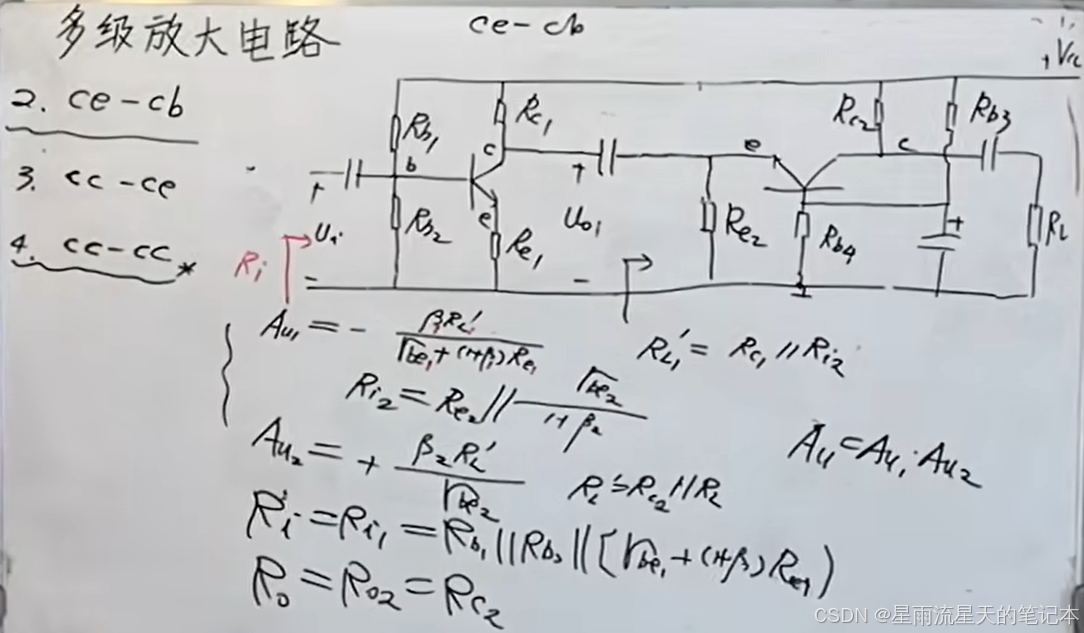 多级放大电路
ce-cb
+Vcc
2. ce-cb
3. cc-ce
4. cc-cc *
Rb1
Rc1
Rc2
Rb3
b
c
e
c
+
+
Ui
Rb2
e
Re1
Uo1
Re2
Rb4
+
RL
Ri
-
-
Au1 = - β1RL1' / rbe1+(1+β1)Re1
RL1' = Rc1 // Ri2
Ri2 = Re2 // rbe2 / 1+β2
Au2 = + β2RL' / rbe2
RL' = Rc2 // RL
Au = Au1·Au2
Ri = Ri1 = Rb1 || Rb2 || [rbe1 + (1+β)Re1)
Ro = Ro2 = Rc2
CSDN @星雨流星天的笔记本